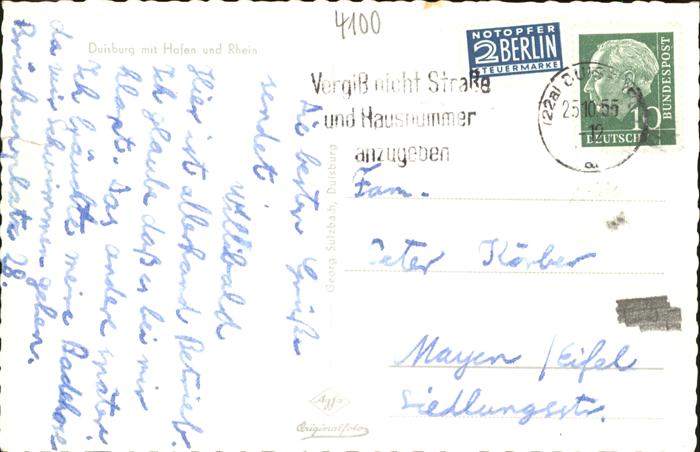 4100
Duisburg mit Hafen und Rhein
NOTOPFER
2 BERLIN
STEUERMARKE
DEUTSCHE
BUNDESPOST
10
(22a) DUISBURG
25.10.55
12
a
Vergiß nicht Straße
und Hausnummer
anzugeben
Die besten Grüße
sendet
Willibald
Hier ist allerhand Betrieb.
Ich glaube daß es bei mir
klapt. Das andere später.
Ich bräuchte meine Badehose
da wir Schwimmen gehen.
Brückenplatz 28.
Georg Sulzbach, Duisburg
Fam.
Peter Körber
Mayen / Eifel
Siedlungsstr.
Agfa
Originalfoto